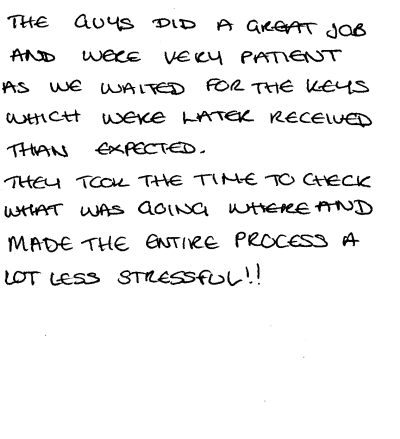 THE GUYS DID A GREAT JOB
AND WERE VERY PATIENT
AS WE WAITED FOR THE KEYS
WHICH WERE LATER RECEIVED
THAN EXPECTED.
THEY TOOK THE TIME TO CHECK
WHAT WAS GOING WHERE AND
MADE THE ENTIRE PROCESS A
LOT LESS STRESSFUL!!